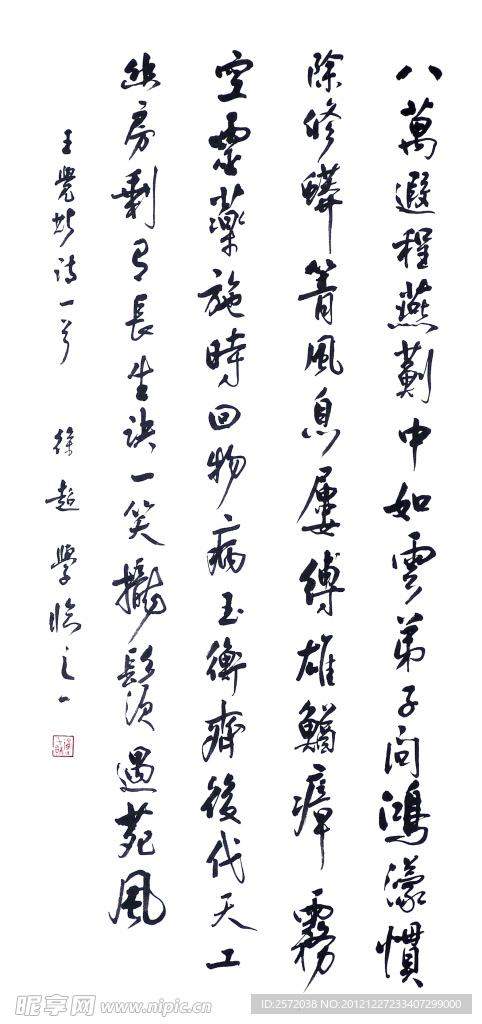 八萬遐程燕薊中如雲弟子問鴻濛慣
除修蟒箐風息屢縛雄鱷瘴霧
空靈藥施時回物病玉衡齊後代天工
丝房剩有長生訣一笑攏鬚須遇苑風
王覺斯詩一首 徐超 學臨之一
昵享网 www.nipic.cn
ID:2572038 NO:20121227233407299000